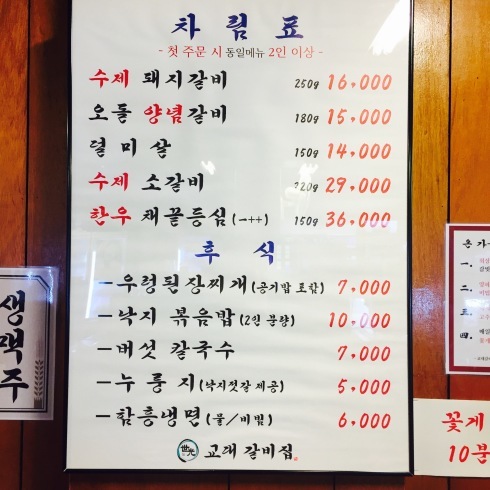 차림표
- 첫 주문 시 동일메뉴 2인 이상 -
수제 돼지갈비 250g 16,000
오돌 양념갈비 180g 15,000
덜미살 150g 14,000
수제 소갈비 220g 29,000
한우 채끝등심(-++) 150g 36,000
후식
-우렁된장찌개(공기밥 포함) 7,000
-낙지 볶음밥(2인 분량) 10,000
-버섯 칼국수 7,000
-누룽지(낙지젓갈 제공) 5,000
-함흥냉면(물/비빔) 6,000
世光 고래 갈비집
생맥주
온 가
一.
二.
三.
四.
꽃게
10분